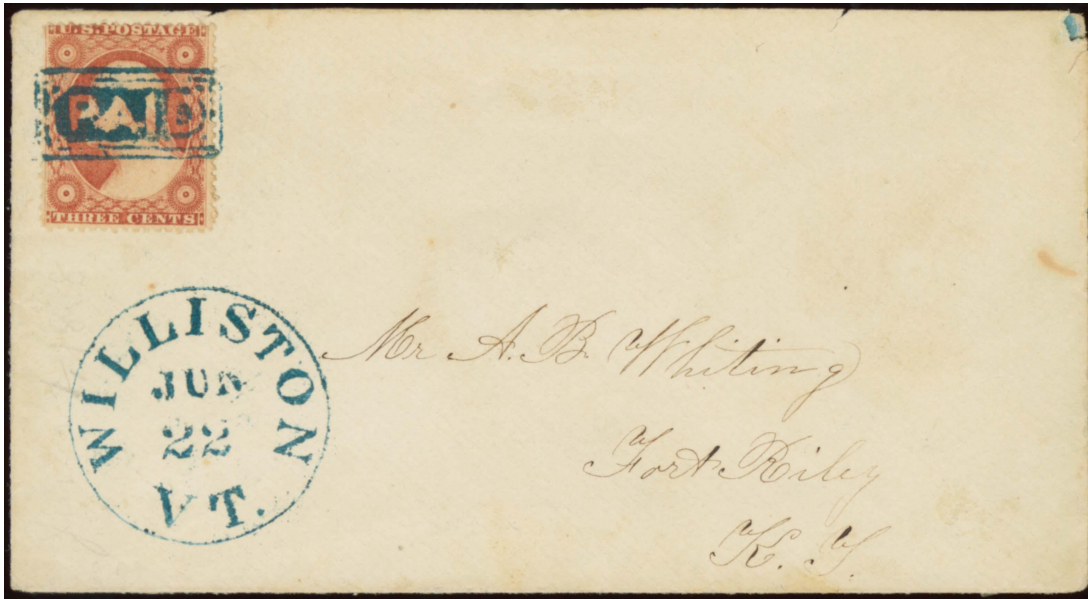 U.S. POSTAGE
PAID
THREE CENTS
WILLISTON
JUN
22
VT.
Mr A. B. Whiting
Fort Riley
K. T.